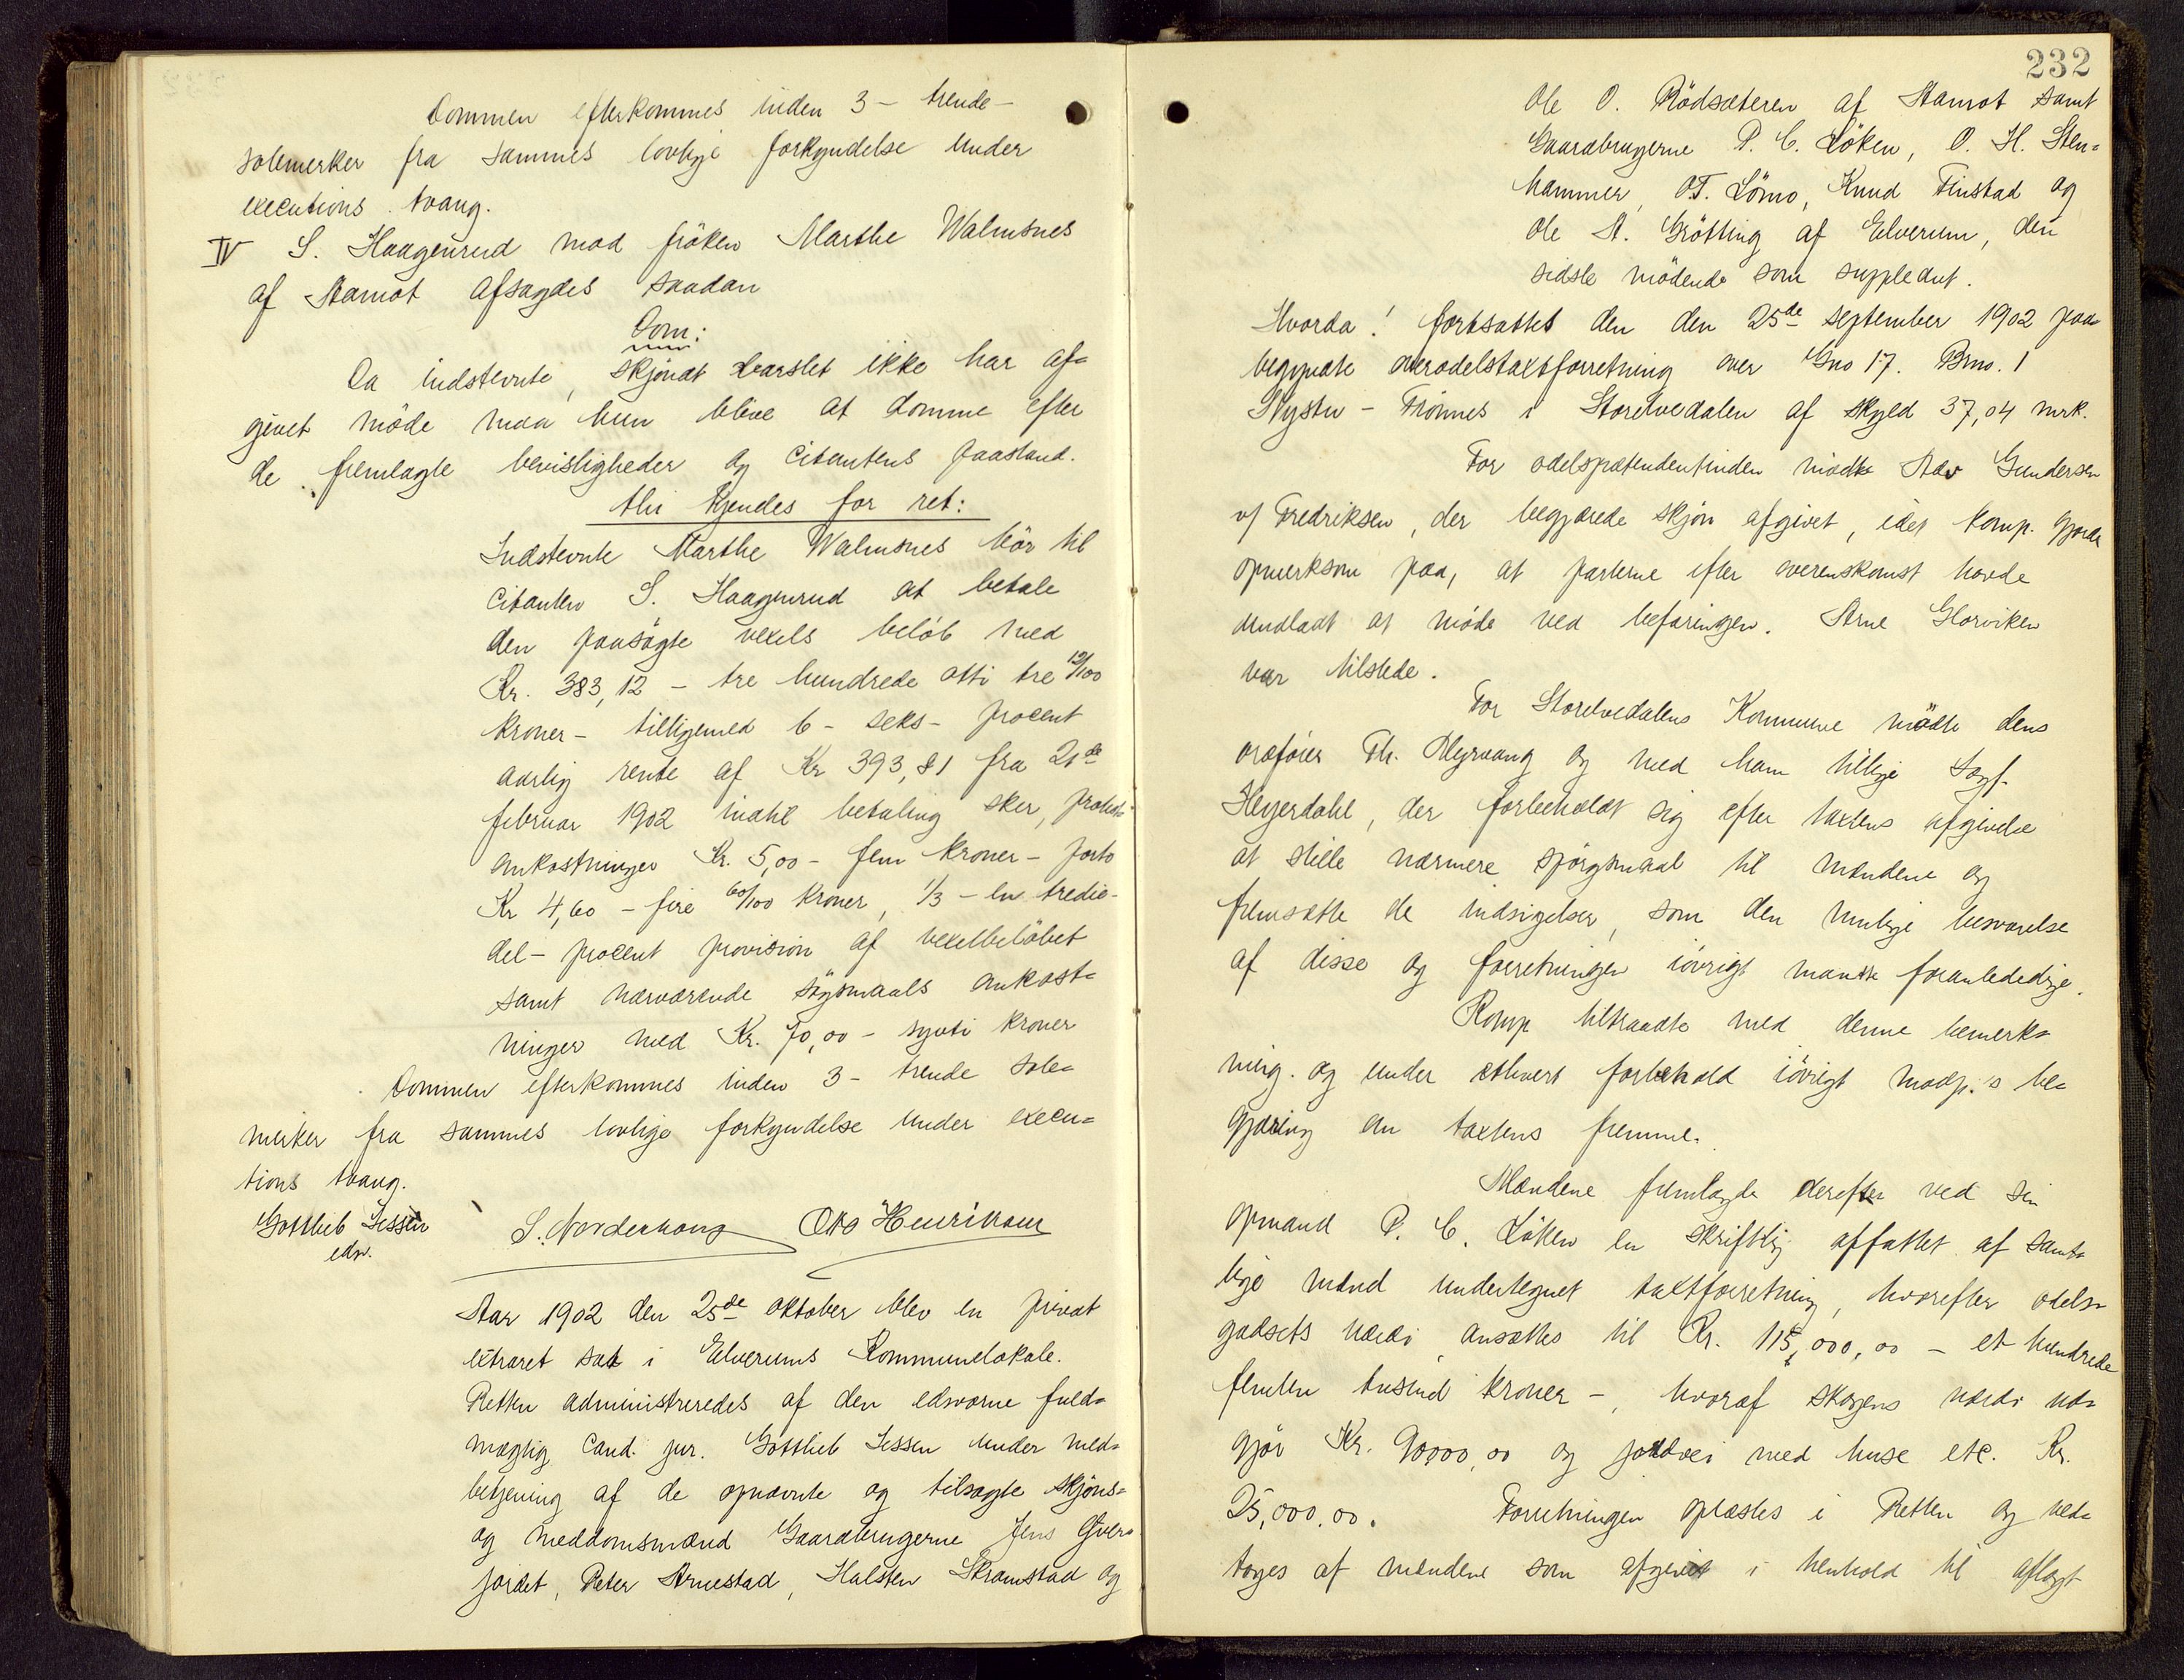 Dommen efterkommes inden 3 - trende -
solemerker fra sammes lovlige forkyndelse under
executions tvang.
IV S. Haagenrud mod fröken Marthe Walmsnes
af Aamot afsagdes saadan
Dom:
Da indstevnte, skjöndt varslet ikke har af=
givet möde maa hun blive at domme efter
de fremlagte bevisligheder og Citantens paastand.
thi kjendes for ret:
Indstevnte Marthe Walmsnes bör til
Citanten S. Haagenrud at betale
den paasögte vexels belöb med
Kr. 383,12 - tre hundrede otti tre 12/100
kroner - tilligemed 6 - seks - procent
aarlig rente af Kr 393,81 fra 21de
februar 1902 indtil betaling sker, protest=
omkostninger Kr. 5,00 - fem kroner - porto
Kr 4,60 - fire 60/100 kroner, 1/3 - en tredie-
del - procent provision af vexelbelöbet
samt nærværende sögsmaals omkost=
ninger med Kr. 70,00 - sytti kroner
Dommen efterkommes inden 3 - trende sole=
merker fra sammes lovlige forkyndelse under execu=
tions tvang.
Gottlieb Jessen S. Norderhaug Otto Henriksen
edsv.
Aar 1902 den 25de oktober blev en privat
extraret sat i Elverums Kommunelokale.
Retten administreredes af den edsvorne fuld=
mægtig Cand. jur. Gottlieb Jessen under med=
betjening af de opnævnte og tilsagte skjöns=
og meddomsmænd Gaardbrugerne Jens Gver=
jordet, Peter Arnestad, Halsten Stramstad og
232
Ole O. Rödsæteren af Aamot samt
Gaardbrugerne P. C. Löken, O. H. Sten=
hammer, O.T. Lömo, Knud Finstad og
Ole A. Grötting af Elverum, den
sidste mödende som suppleant.
Hvorda! fortsattes den den 25de september 1902 paa=
begyndte overodelstaxtforretning over Gno 17. Bno. 1
Nystu - Trönnes i Storelvedalen af skyld 37,04 mrk.
For odelsprætendentinden mödte Adv Gundersen
v/ Fredriksen, der begjærede skjön afgivet, idet komp. gjorde
opmerksom paa, at parterne efter overenskomst havde
undladt at möde ved befaringen. Arne Glorviken
var tilstede.
For Storelvedalens Kommune mödte dens
ordförer Th. Myrvang og med ham tillige Sagf.
Heyerdahl, der forbeholdt sig efter taxtens afgivelse
at stille nærmere spörgsmaal til mændene og
fremsætte de indsigelser, som den mulige besvarelse
af disse og forretningen iövrigt maatte foranledige.
Komp tiltraadte med denne bemerk=
ning. og under ethvert forbehold iövrigt modp.'s be=
gjæring om taxtens fremme.
Mændene fremlagde derefter ved sin
opmand P. C. Löken en skriftlig affattet af samt=
lige mænd undertegnet taxtforretning, hvorefter odels=
godsets værdi ansættes til Kr. 115,000,00 - et hundrede
femten tusind kroner -, hvoraf skogens værdi ud=
gjör Kr. 90,000,00 og jordvei med huse etc. Kr.
25,000.00. Forretningen oplæstes i Retten og ved=
toges af mændene som afgivet i henhold til aflagt